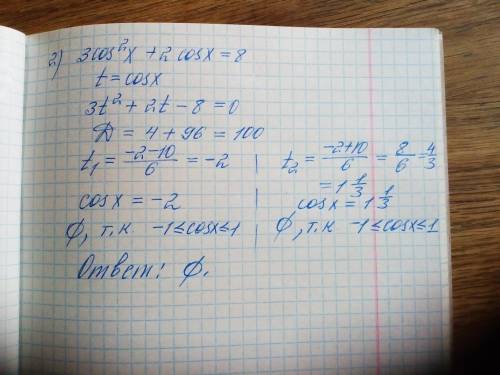 2) 3cos²x + 2cosx = 8
t = cosx
3t² + 2t - 8 = 0
D = 4 + 96 = 100
t₁ = (-2-10)/6 = -2 | t₂ = (-2+10)/6 = 8/6 = 4/3
= 1 1/3
cosx = -2 | cosx = 1 1/3
∅, т.к. -1≤cosx≤1 | ∅, т.к. -1≤cosx≤1
Ответ: ∅.